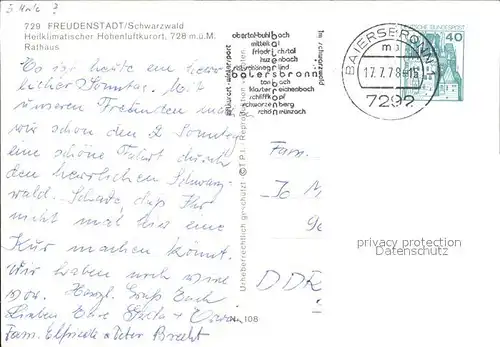 729 FREUDENSTADT/Schwarzwald
Heilklimatischer Höhenluftkurort, 728 m ü. M.
Rathaus
Es ist heute ein herr-
licher Sonntag. Mit
unseren Freunden
wir schon den 2. Sonntag
eine schöne Fahrt durch
den herrlichen Schwarz-
wald. Schade, daß Ihr
nicht mal hier eine
Kur machen könnt.
Wir haben noch eine
Herzl. Gruß Euch
Lieben Eure
Fam. Elfriede u. Peter Brecht
obertal-buhlbach
mitteltal
friedrichstal
huzenbach
baiersbronn
tonbach
klosterreichenbach
schliffkopf
schwarzenberg
schönmünzach
im schwarzwald
BAIERSBRONN 1
17.7.78-15
7292
DEUTSCHE BUNDESPOST
40
Urheberrechtlich geschützt © T.P.I. Reproduktion
108
Fam.
DDR
privacy protection
Datenschutz